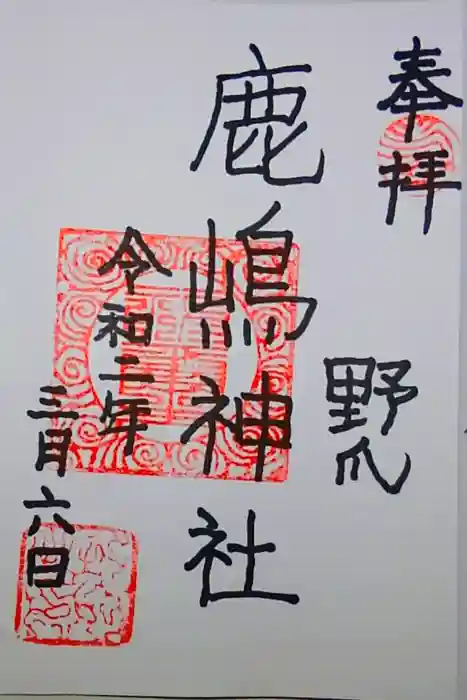 奉拝
野爪
鹿嶋神社
令和二年
三月六日